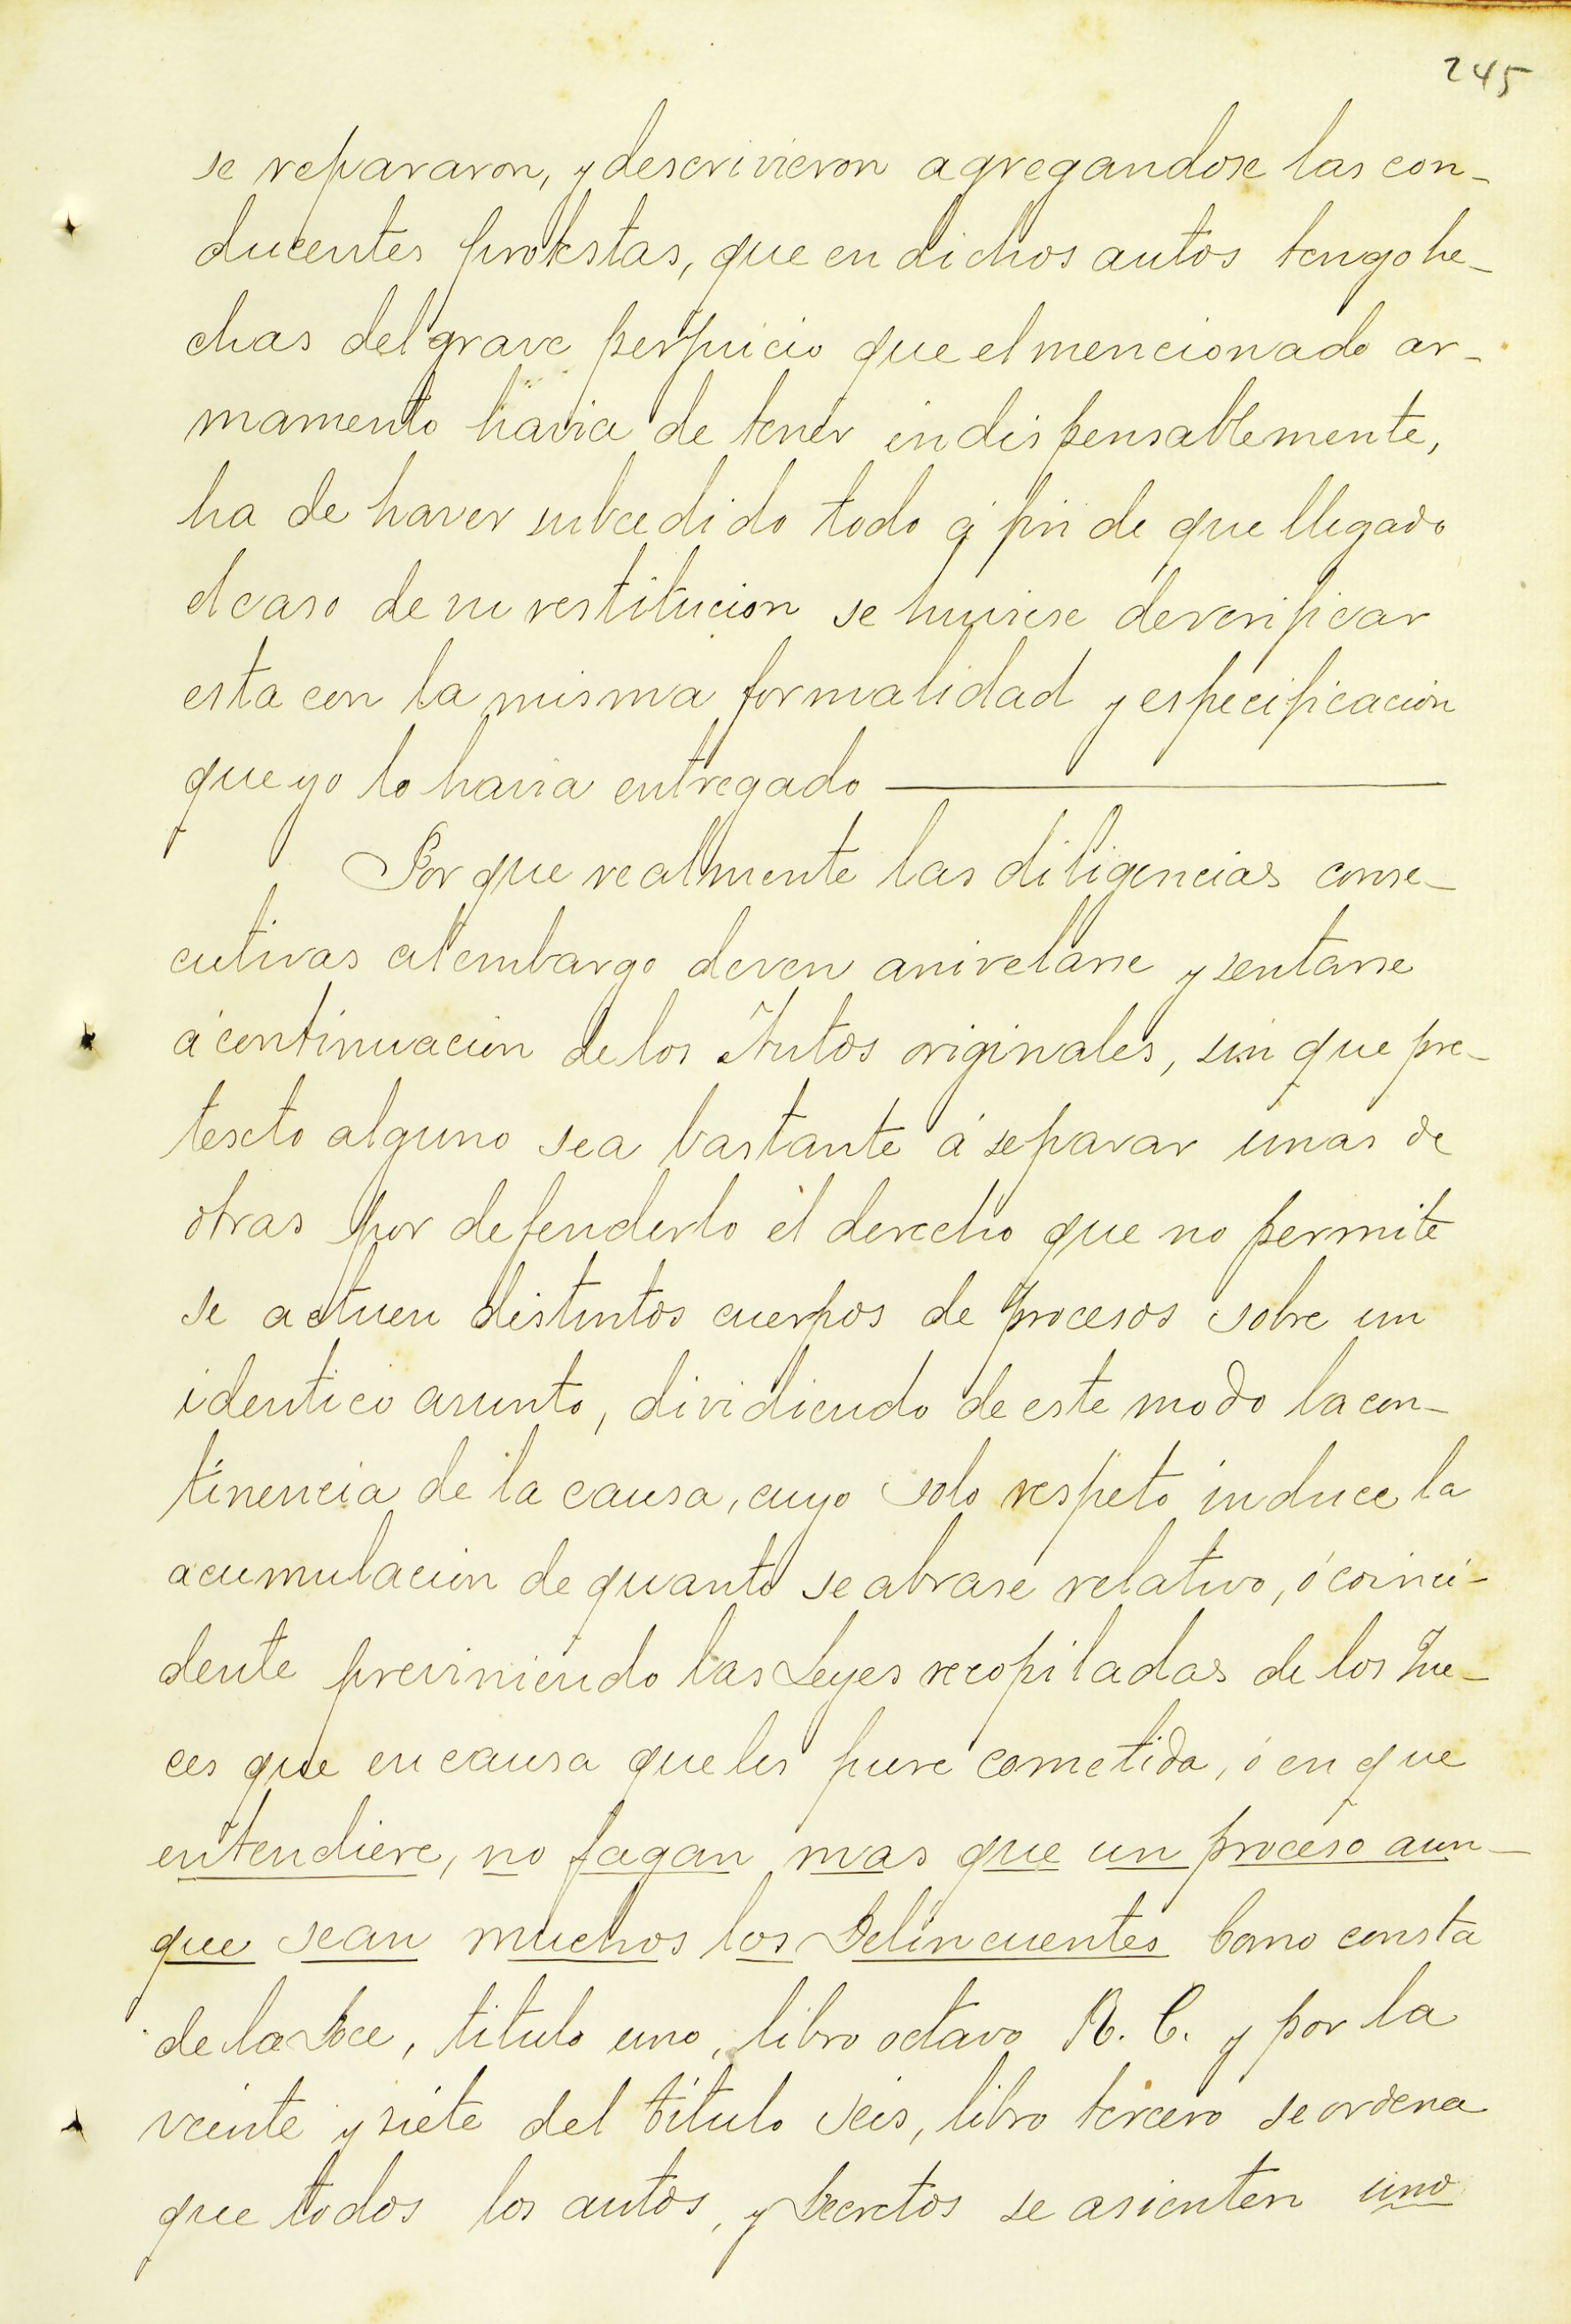 245
se repararon, y descrivieron agregandose las con-
ducentes protestas, que en dichos autos tengo he-
chas del grave perjuicio que el mencionado ar-
mamento havia de tener indispensablemente,
ha de haver subcedido todo á fin de que llegado
el caso de su restitucion se huviese de verificar
esta con la misma formalidad y especificacion
que yo lo havia entregado
Por que realmente las diligencias conse-
cutivas al embargo deven anivelarse y sentarse
á continuacion de los Autos originales, sin que pre-
texto alguno sea bastante á separar unas de
otras por defenderlo el derecho que no permite
se actuen distintos cuerpos de procesos sobre un
identico asunto, dividiendo de este modo la con-
tinencia de la causa, cuyo solo respeto induce la
acumulacion de quanto se abrase relativo, ó coinci-
dente previniendo las Leyes recopiladas de los Jue-
ces que en causa que les fuere cometida, ó en que
entendiere, no fagan mas que un proceso aun-
que sean muchos los Delincuentes como consta
de la Doce, titulo uno, libro octavo R. C. y por la
veinte y siete del titulo seis, libro tercero se ordena
que todos los autos, y Decretos se asienten uno